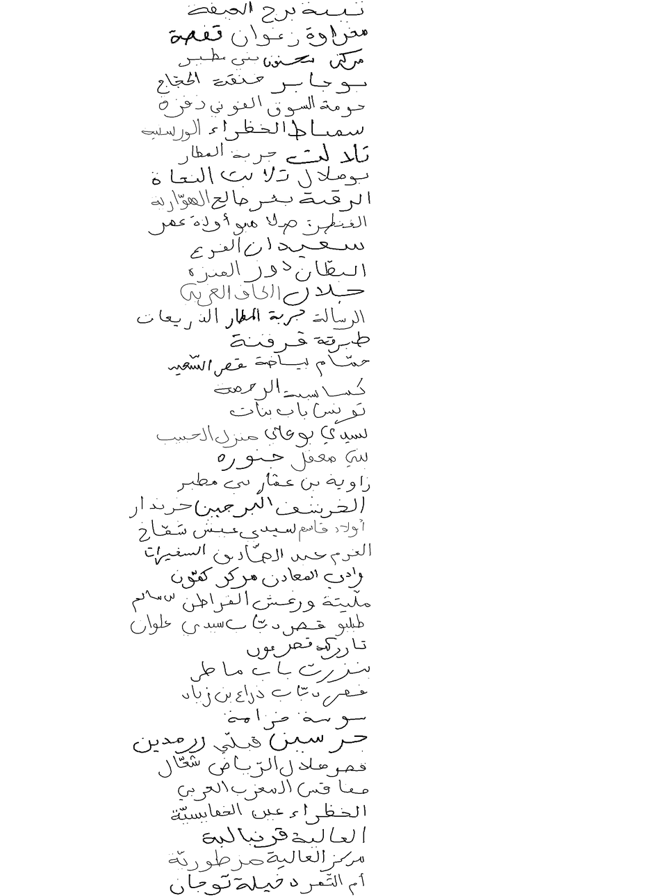 تبسة برج الحيفة
مغراوة زغوان قفصة
مركز محنون بني مطير
بوجابر خنقة الحجاج
حومة السوق الفوني ذفزة
سماط الخظراء الورسنيه
تلالت جربة المطار
بوهلال تلالت النعاة
الرقبة بئر صالح الهوّارية
القنطرة أولاد عمر
سعيدان القرع
البطّان دوز المنزه
جلال الحاف الغربي
الرسالة جربة المطار الذريعات
طبرقة قرقنة
حمّام بياضة قصر السّعيد
كساسبة الرحمة
تونس باب بنات
سيدي بوعلي منزل الحبيب
بني معقل جنورة
زاوية بن عمّار بني مطير
الخريشف البرجين خزندار
أولاد قاسم سيدي عيش شمّاخ
القرم عبد الصّادق السفيرات
وادي المعادن مركز كمّون
ملّيتة ورغش القراطن بن سالم
طبلبو قصر دبّاب سيدي علوان
تاركة قصر عون
بنزرت باب ماطر
قصر دبّاب ذراع بن زياد
سوسة خزامة
جرسين قبلّي رمدين
قصر هلال الرّياض شعّال
صفاقس المغرب العربي
الخظراء عين الخمايسيّة
العالية قرنبالية
مركز العالية مرطوريّة
أم التّمر دخيلة توجان